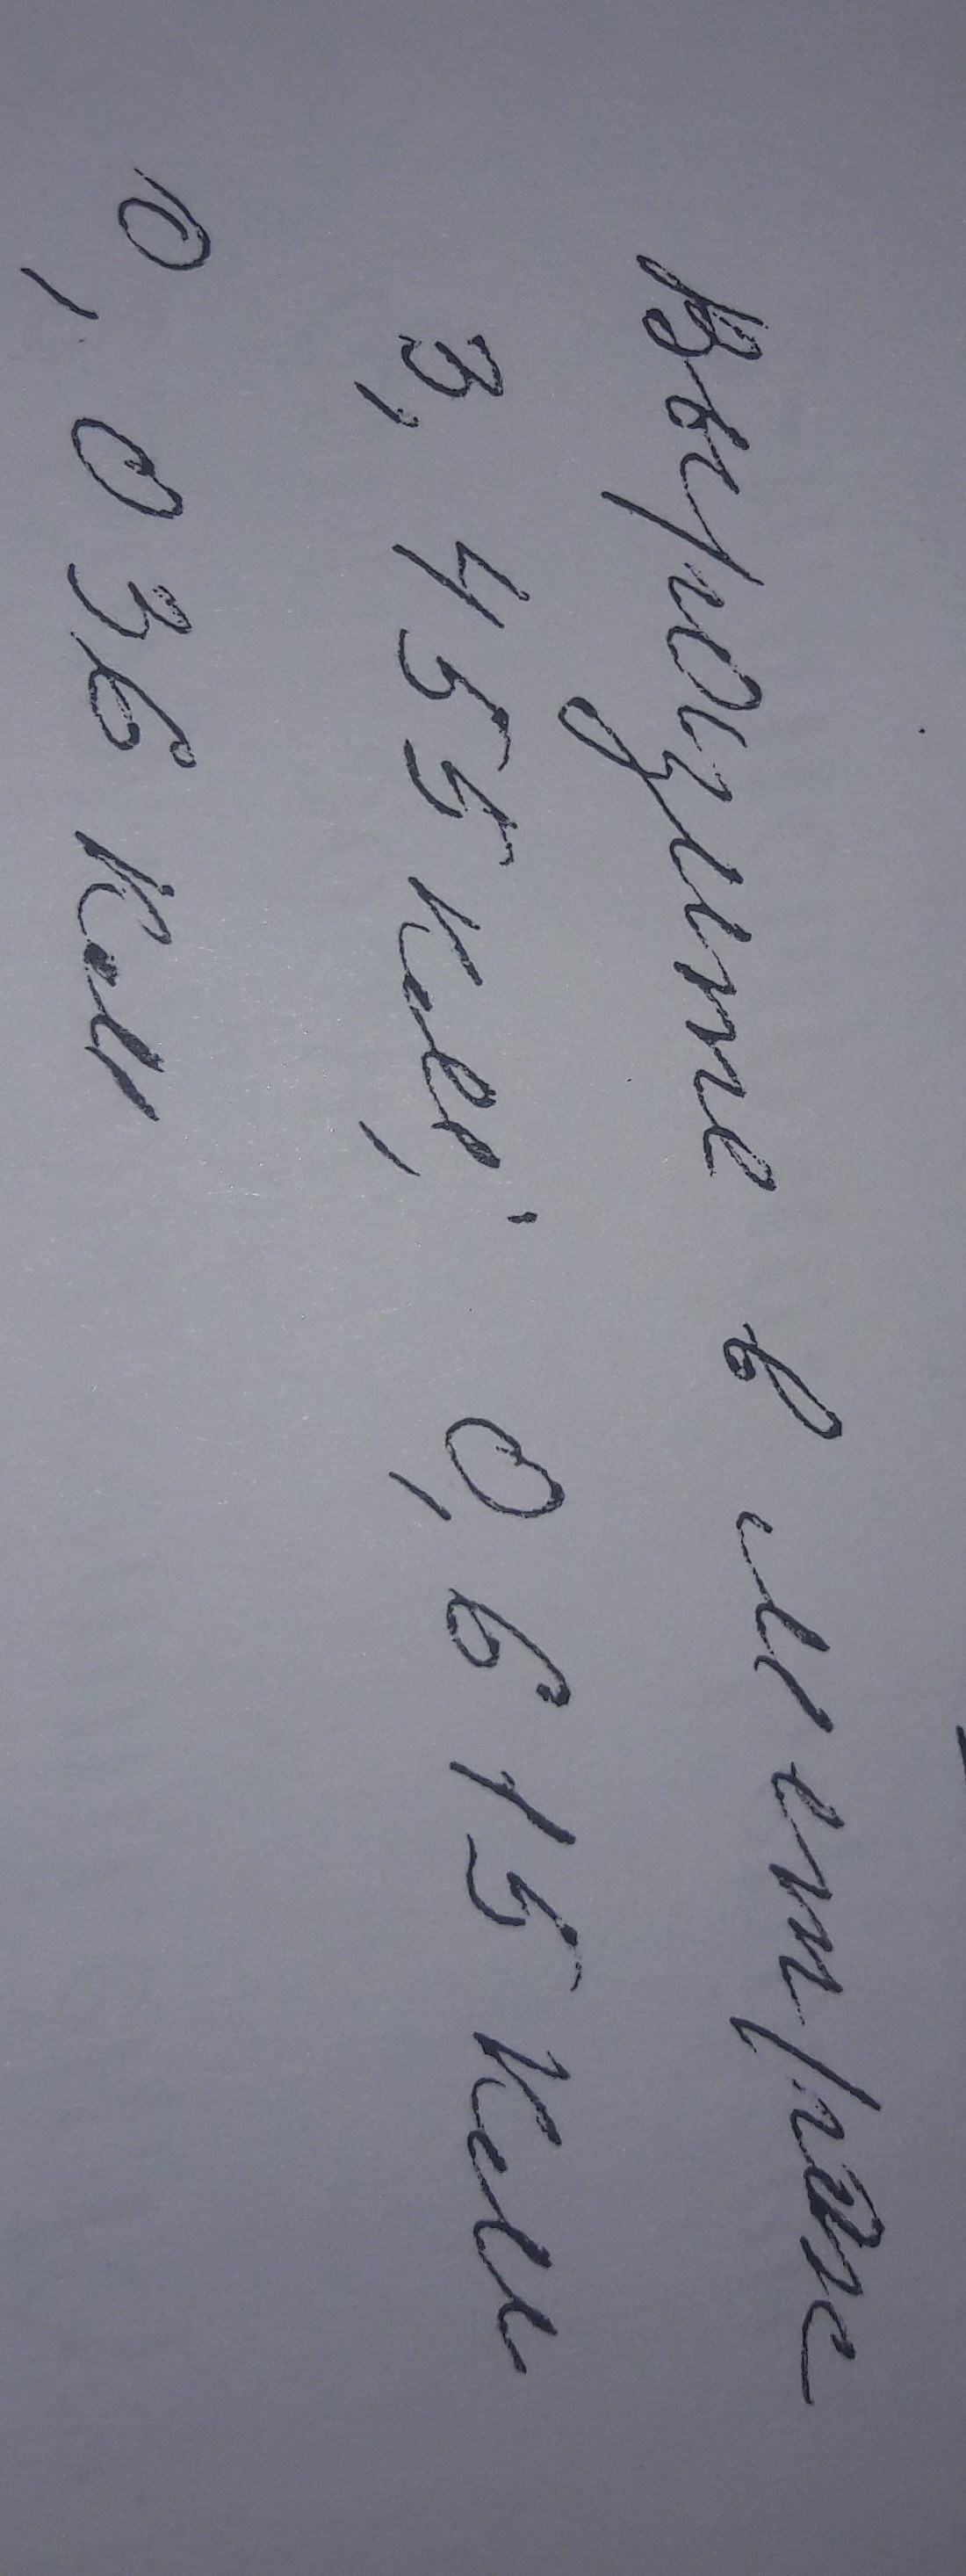 Выразите в метрах
3,455 км; 0,615 км
0,036 км